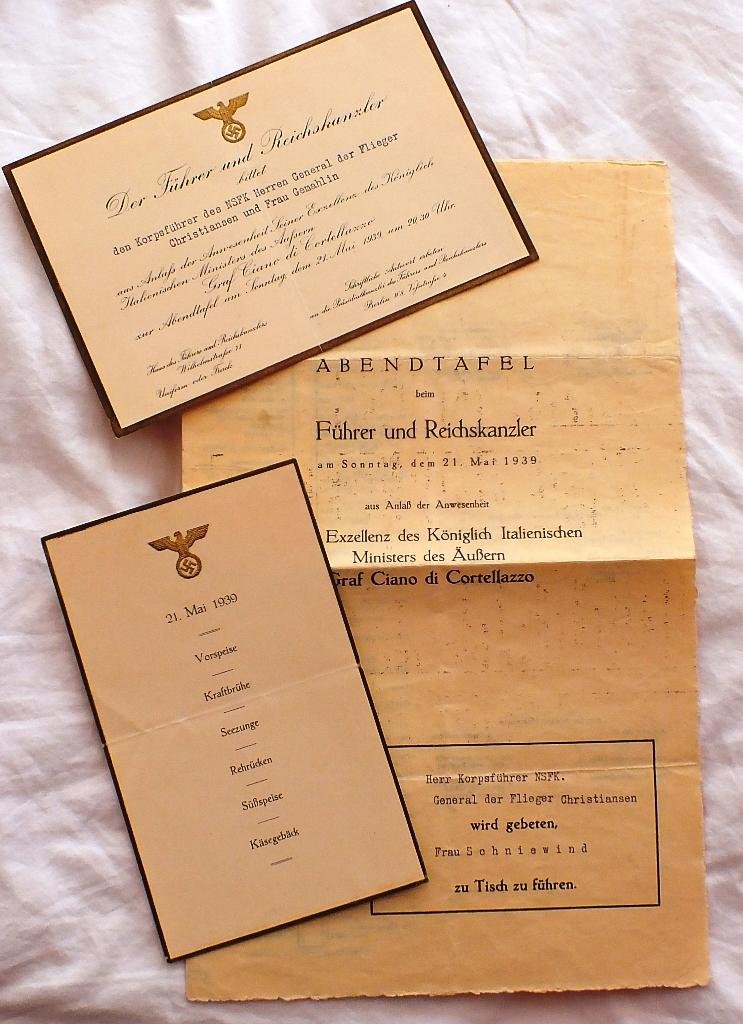 Der Führer und Reichskanzler
bittet
den Korpsführer des NSFK Herren General der Flieger
Christiansen und Frau Gemahlin
aus Anlaß der Anwesenheit Seiner Exzellenz des Königlich
Italienischen Ministers des Äußern
Graf Ciano di Cortellazzo
zur Abendtafel am Sonntag, dem 21. Mai 1939 um 20,30 Uhr.
Haus des Führers und Reichskanzlers
Wilhelmstraße 77
Uniform oder Frack
Schriftliche Antwort erbeten
an die Präsidialkanzlei des Führers und Reichskanzlers
Berlin W8, Voßstraße 4
ABENDTAFEL
beim
Führer und Reichskanzler
am Sonntag, dem 21. Mai 1939
aus Anlaß der Anwesenheit
Exzellenz des Königlich Italienischen
Ministers des Äußern
Graf Ciano di Cortellazzo
Herr Korpsführer NSFK.
General der Flieger Christiansen
wird gebeten,
Frau Schniewind
zu Tisch zu führen.
21. Mai 1939
Vorspeise
Kraftbrühe
Seezunge
Rehrücken
Süßspeise
Käsegebäck